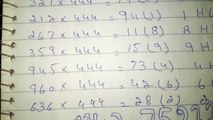 321 x 444 =
212 x 444 = 94 (1) 1 H
247 x 444 = 11 (8) 8 H
359 x 444 = 15 (9) 9 H
945 x 444 = 73 (4) 4 H
960 x 444 = 42 (6) 6
636 x 444 = 28 (2) 2